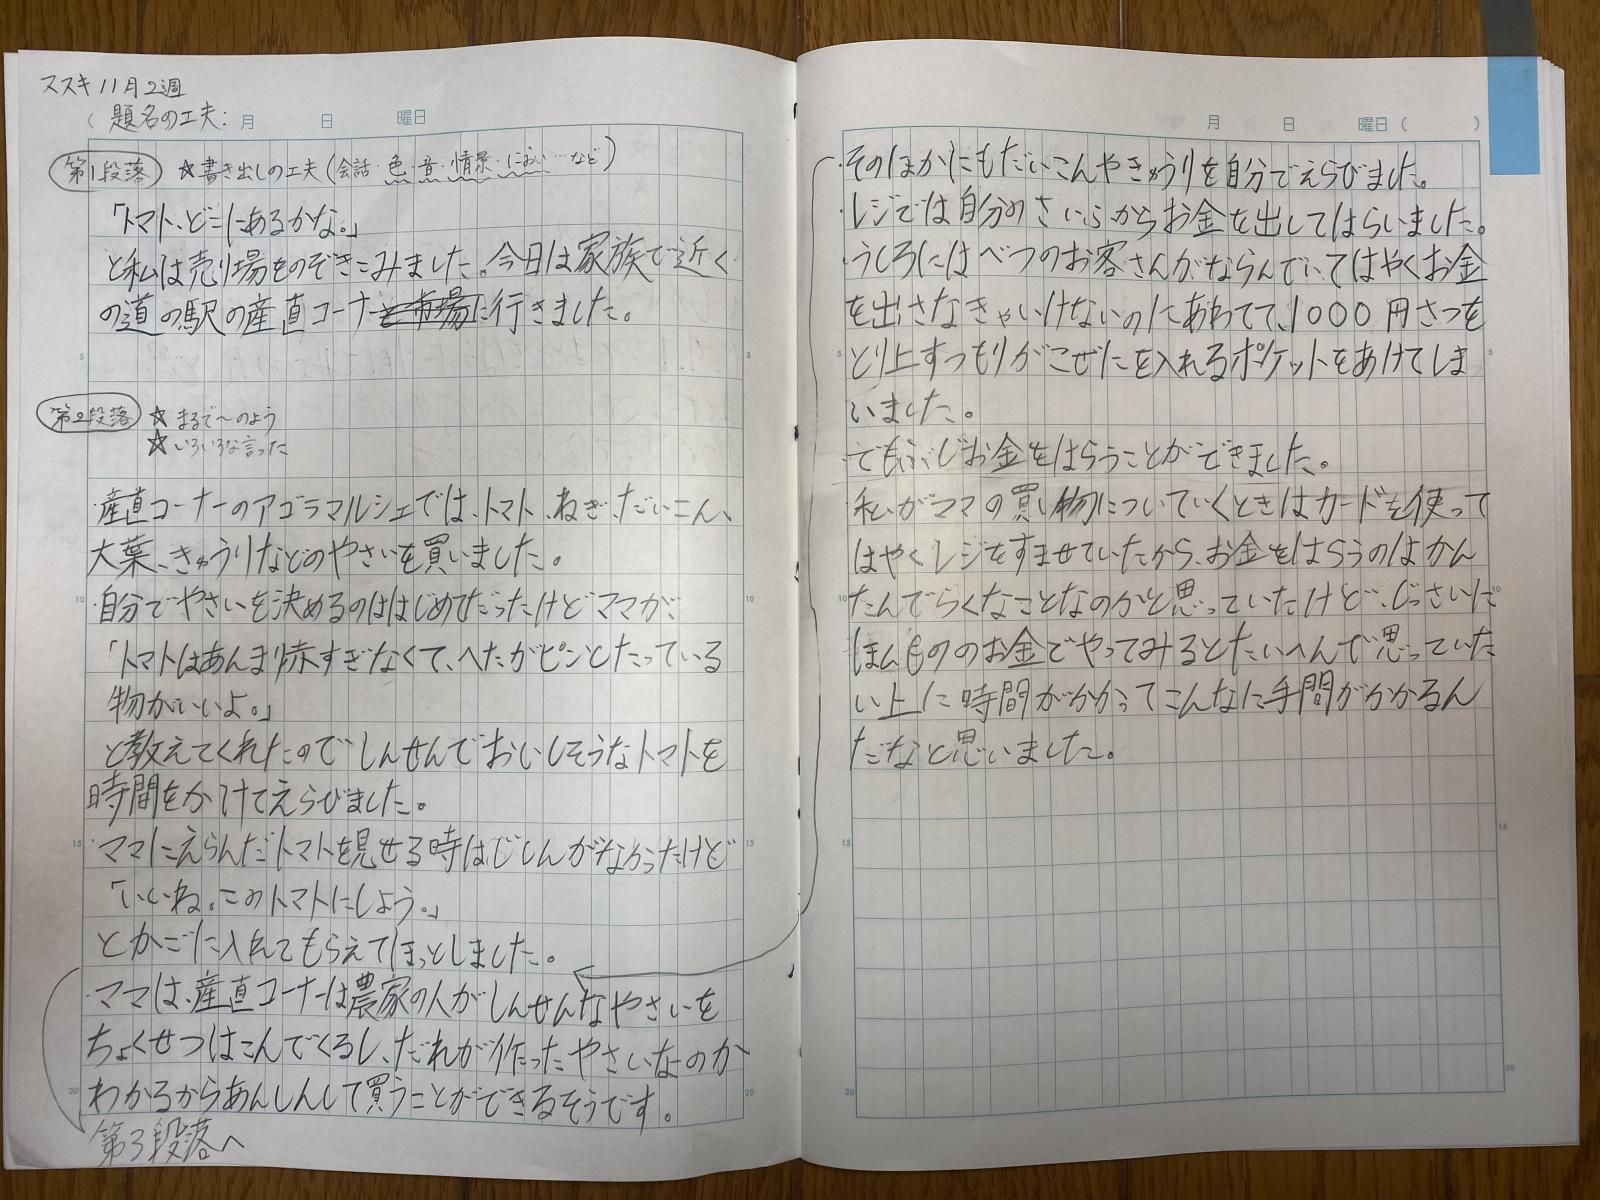 ススキ11月2週
(題名の工夫: 月 日 曜日
第1段落 ☆書き出しの工夫(会話・色・音・情景・におい…など)
「トマト、どこにあるかな。」
と私は売り場をのぞきこみました。今日は家族で近く
の道の駅の産直コーナーに行きました。
5
5
第2段落 ☆まるで〜のよう
☆いろいろな言った
・産直コーナーのアゴラマルシェでは、トマト、ねぎ、だいこん、
大葉、きゅうりなどのやさいを買いました。
10
・自分でやさいを決めるのははじめてだったけどママが、
10
「トマトはあんまり赤すぎなくて、へたがピンとたっている
物がいいよ。」
と教えてくれたので しんせんでおいしそうなトマトを
時間をかけてえらびました。
15
・ママにえらんだトマトを見せる時はじしんがなかったけど
15
「いいね。このトマトにしよう。」
とかごに入れてもらえてほっとしました。
・ママは、産直コーナーは農家の人がしんせんなやさいを
ちょくせつはこんでくるし、だれが作ったやさいなのか
20
わかるからあんしんして買うことができるそうです。
20
第3段落へ
月 日 曜日( )
・そのほかにもだいこんやきゅうりを自分でえらびました。
・レジでは自分のさいふからお金を出してはらいました。
・うしろにはべつのお客さんがならんでいてはやくお金
を出さなきゃいけないのにあわてて、1000円さつを
5
とり上すつもりがこぜにを入れるポケットをあけてしま
5
いました。
・でもぶじお金をはらうことができました。
・私がママの買い物についていくときはカードを使って
はやくレジをすませていたから、お金をはらうのはかん
10
たんでらくなことなのかと思っていたけど、じっさいに
10
ほんもののお金でやってみるとたいへんで思っていた
い上に時間がかかってこんなに手間がかかるん
だなと思いました。
15
15
20
20